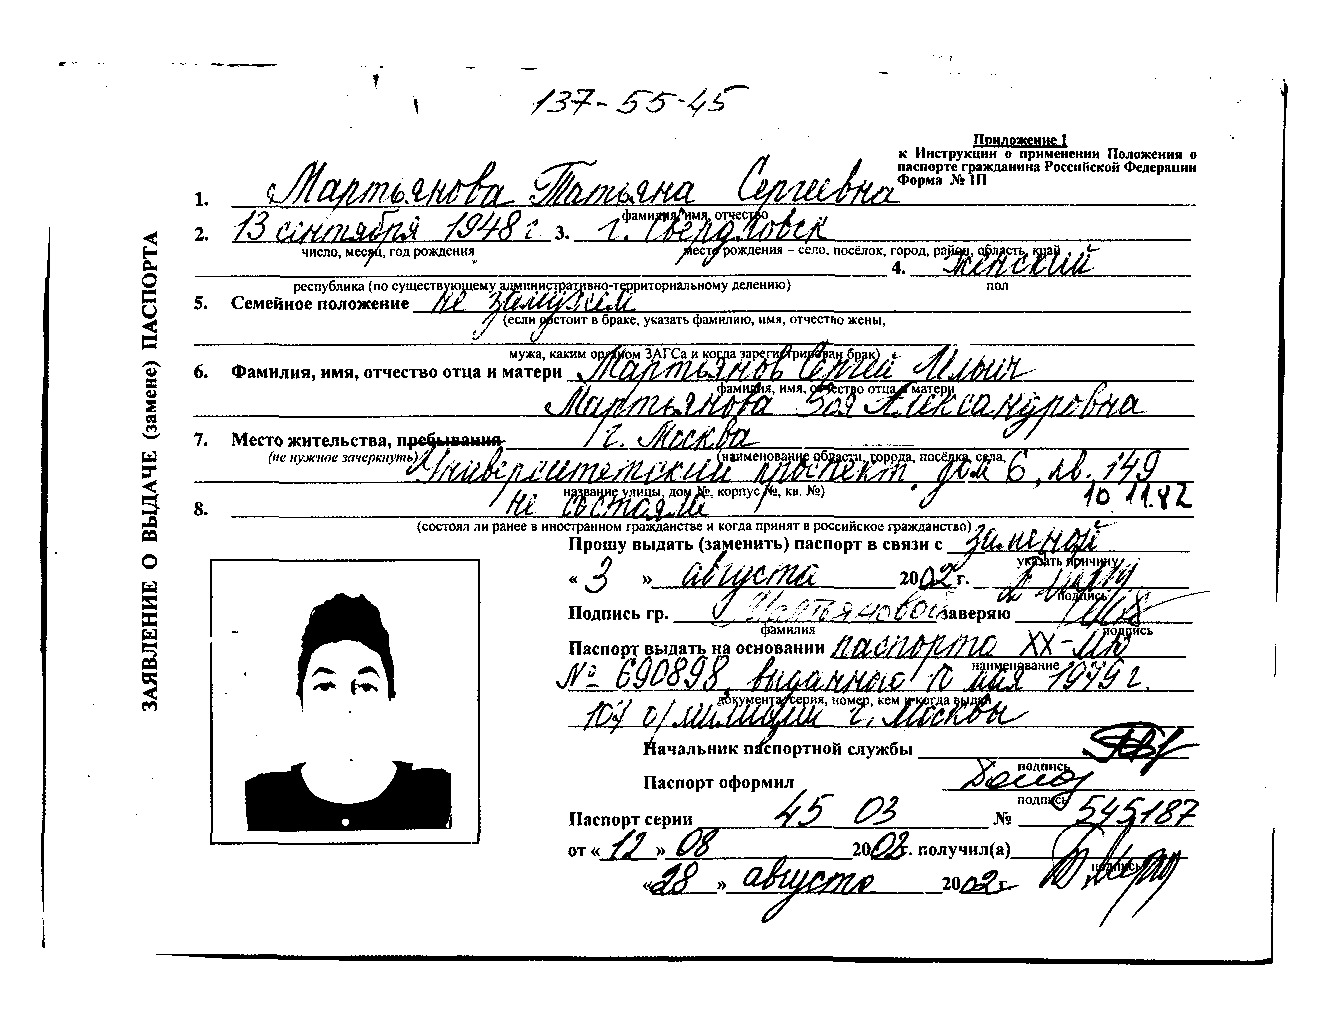 137-55-45
Приложение 1
к Инструкции о применении Положения о
паспорте гражданина Российской Федерации
Форма № 1П
ЗАЯВЛЕНИЕ О ВЫДАЧЕ (замене) ПАСПОРТА
1. Мартьянова Татьяна Сергеевна
фамилия, имя, отчество
2. 13 сентября 1948 г. 3. г. Свердловск
число, месяц, год рождения место рождения – село, посёлок, город, район, область, край
4. женский
республика (по существующему административно-территориальному делению) пол
5. Семейное положение не замужем
(если состоит в браке, указать фамилию, имя, отчество жены,
мужа, каким органом ЗАГСа и когда зарегистрирован брак)
6. Фамилия, имя, отчество отца и матери Мартьянов Сергей Ильич
фамилия, имя, отчество отца и матери
Мартьянова Зоя Александровна
7. Место жительства, пребывания г. Москва
(не нужное зачеркнуть) (наименование области, города, посёлка, села,
Университетский проспект, дом 6, кв. 149
название улицы, дом №, корпус №, кв. №)
10.11.82
8. не состояла
(состоял ли ранее в иностранном гражданстве и когда принят в российское гражданство)
Прошу выдать (заменить) паспорт в связи с заменой
указать причину
« 3 » августа 2002 г.
подпись
Подпись гр. Мартьяновой заверяю
фамилия подпись
Паспорт выдать на основании паспорта XX-МЮ
наименование
№ 690898, выданного 17 мая 1979 г.
документа, серия, номер, кем и когда выдан
107 о/милиции г. Москвы
Начальник паспортной службы
подпись
Паспорт оформил
подпись
Паспорт серии 45 03 № 545187
от « 12 » 08 2002 г. получил(а)
подпись
« 28 » августа 2002 г.